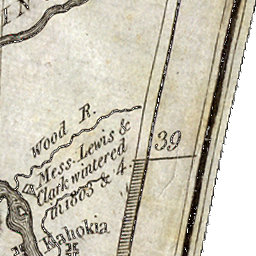 IN
Wood R.
Mess. Lewis &
Clark wintered
in 1803 & 4.
39
Kahokia